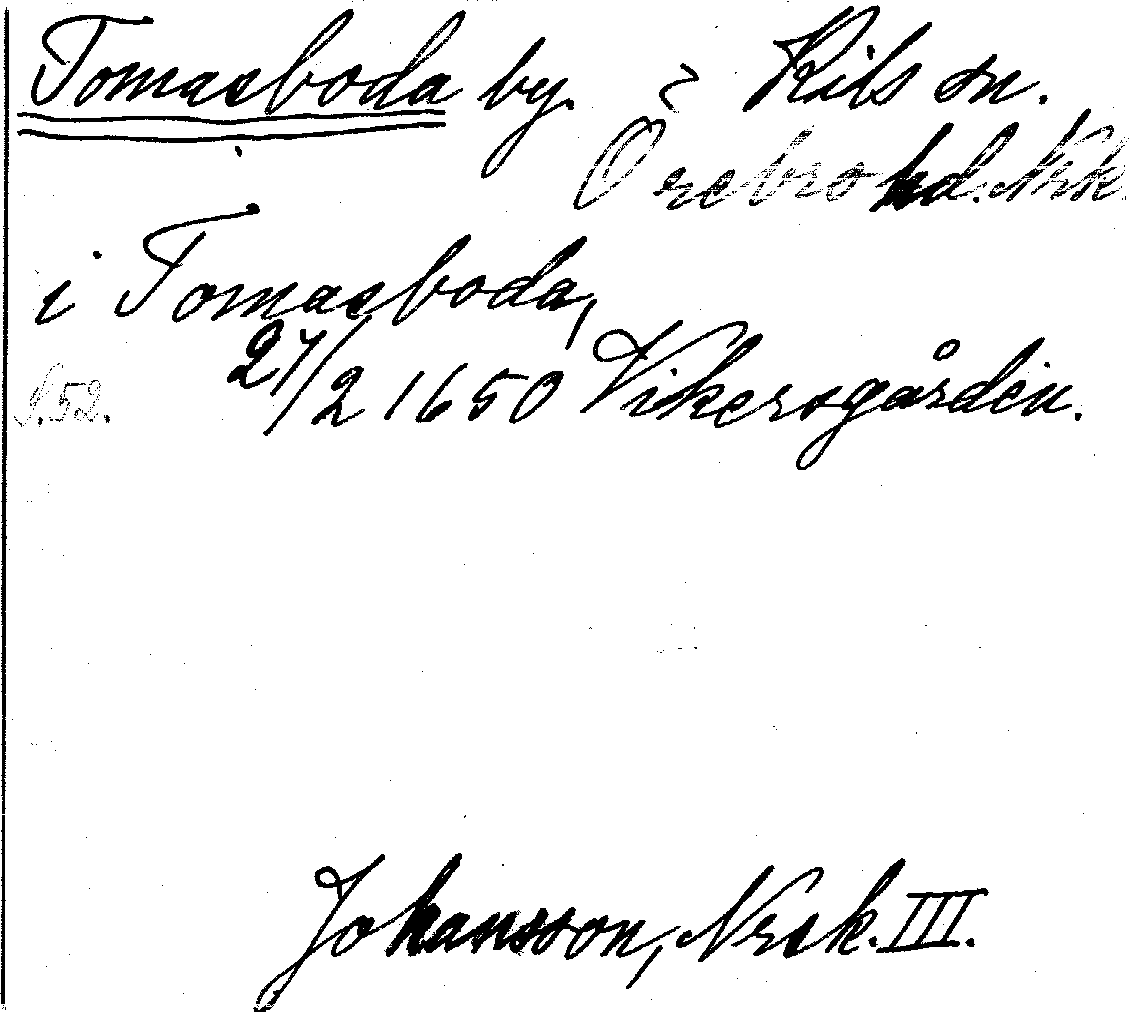 Tomasboda by. ~ Kils sn.
Örebro hd. Nrk.
i Tomasboda,
27/2 1650 Vikersgården.
S. 52.
Johansson, Nrsk. III.